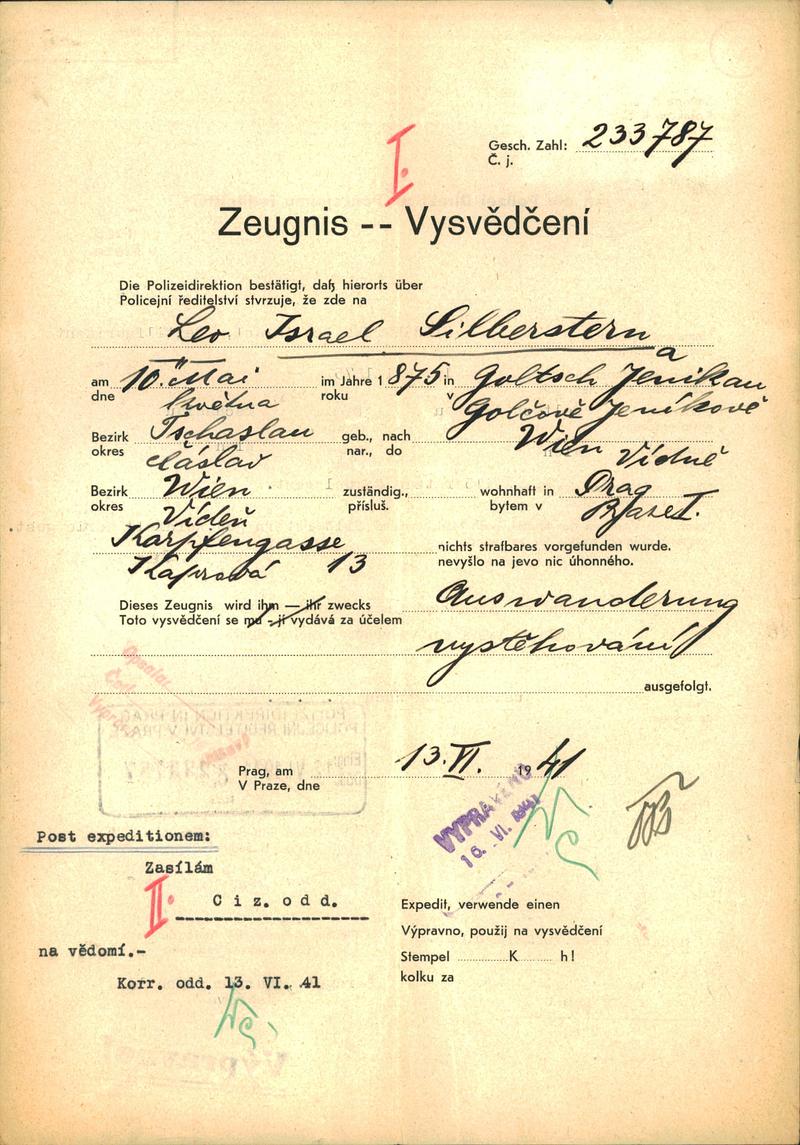 Gesch. Zahl: 233787
Č. j.
I.
Zeugnis -- Vysvědčení
Die Polizeidirektion bestätigt, daß hierorts über
Policejní ředitelství stvrzuje, že zde na
Leo Israel Silberstern
a
am 10. Mai im Jahre 1875 in Goltsch Jenikau
dne května roku v Golčově Jeníkově
Bezirk Tschaslau geb., nach Wien
okres Čáslav nar., do Vídně
Bezirk Wien zuständig., wohnhaft in Prag
okres Vídeň přísluš. bytem v Praze I.
Karpfengasse nichts strafbares vorgefunden wurde.
Kaprová 13 nevyšlo na jevo nic úhonného.
Dieses Zeugnis wird ihm — ihr zwecks Auswanderung
Toto vysvědčení se mu - jí vydává za účelem
vystěhování
ausgefolgt.
POLIZEIDIREKTION IN PRAG
POLICEJNÍ ŘEDITELSTVÍ V PRAZE
Prag, am 13. VI. 1941
V Praze, dne
VYPRAVENO
16. VI. 1941
Post expeditionem:
Zasílám
II. Ciz. odd.
na vědomí.-
Korr. odd. 13. VI. 41
Expedit, verwende einen
Výpravno, použij na vysvědčení
Stempel K h!
kolku za